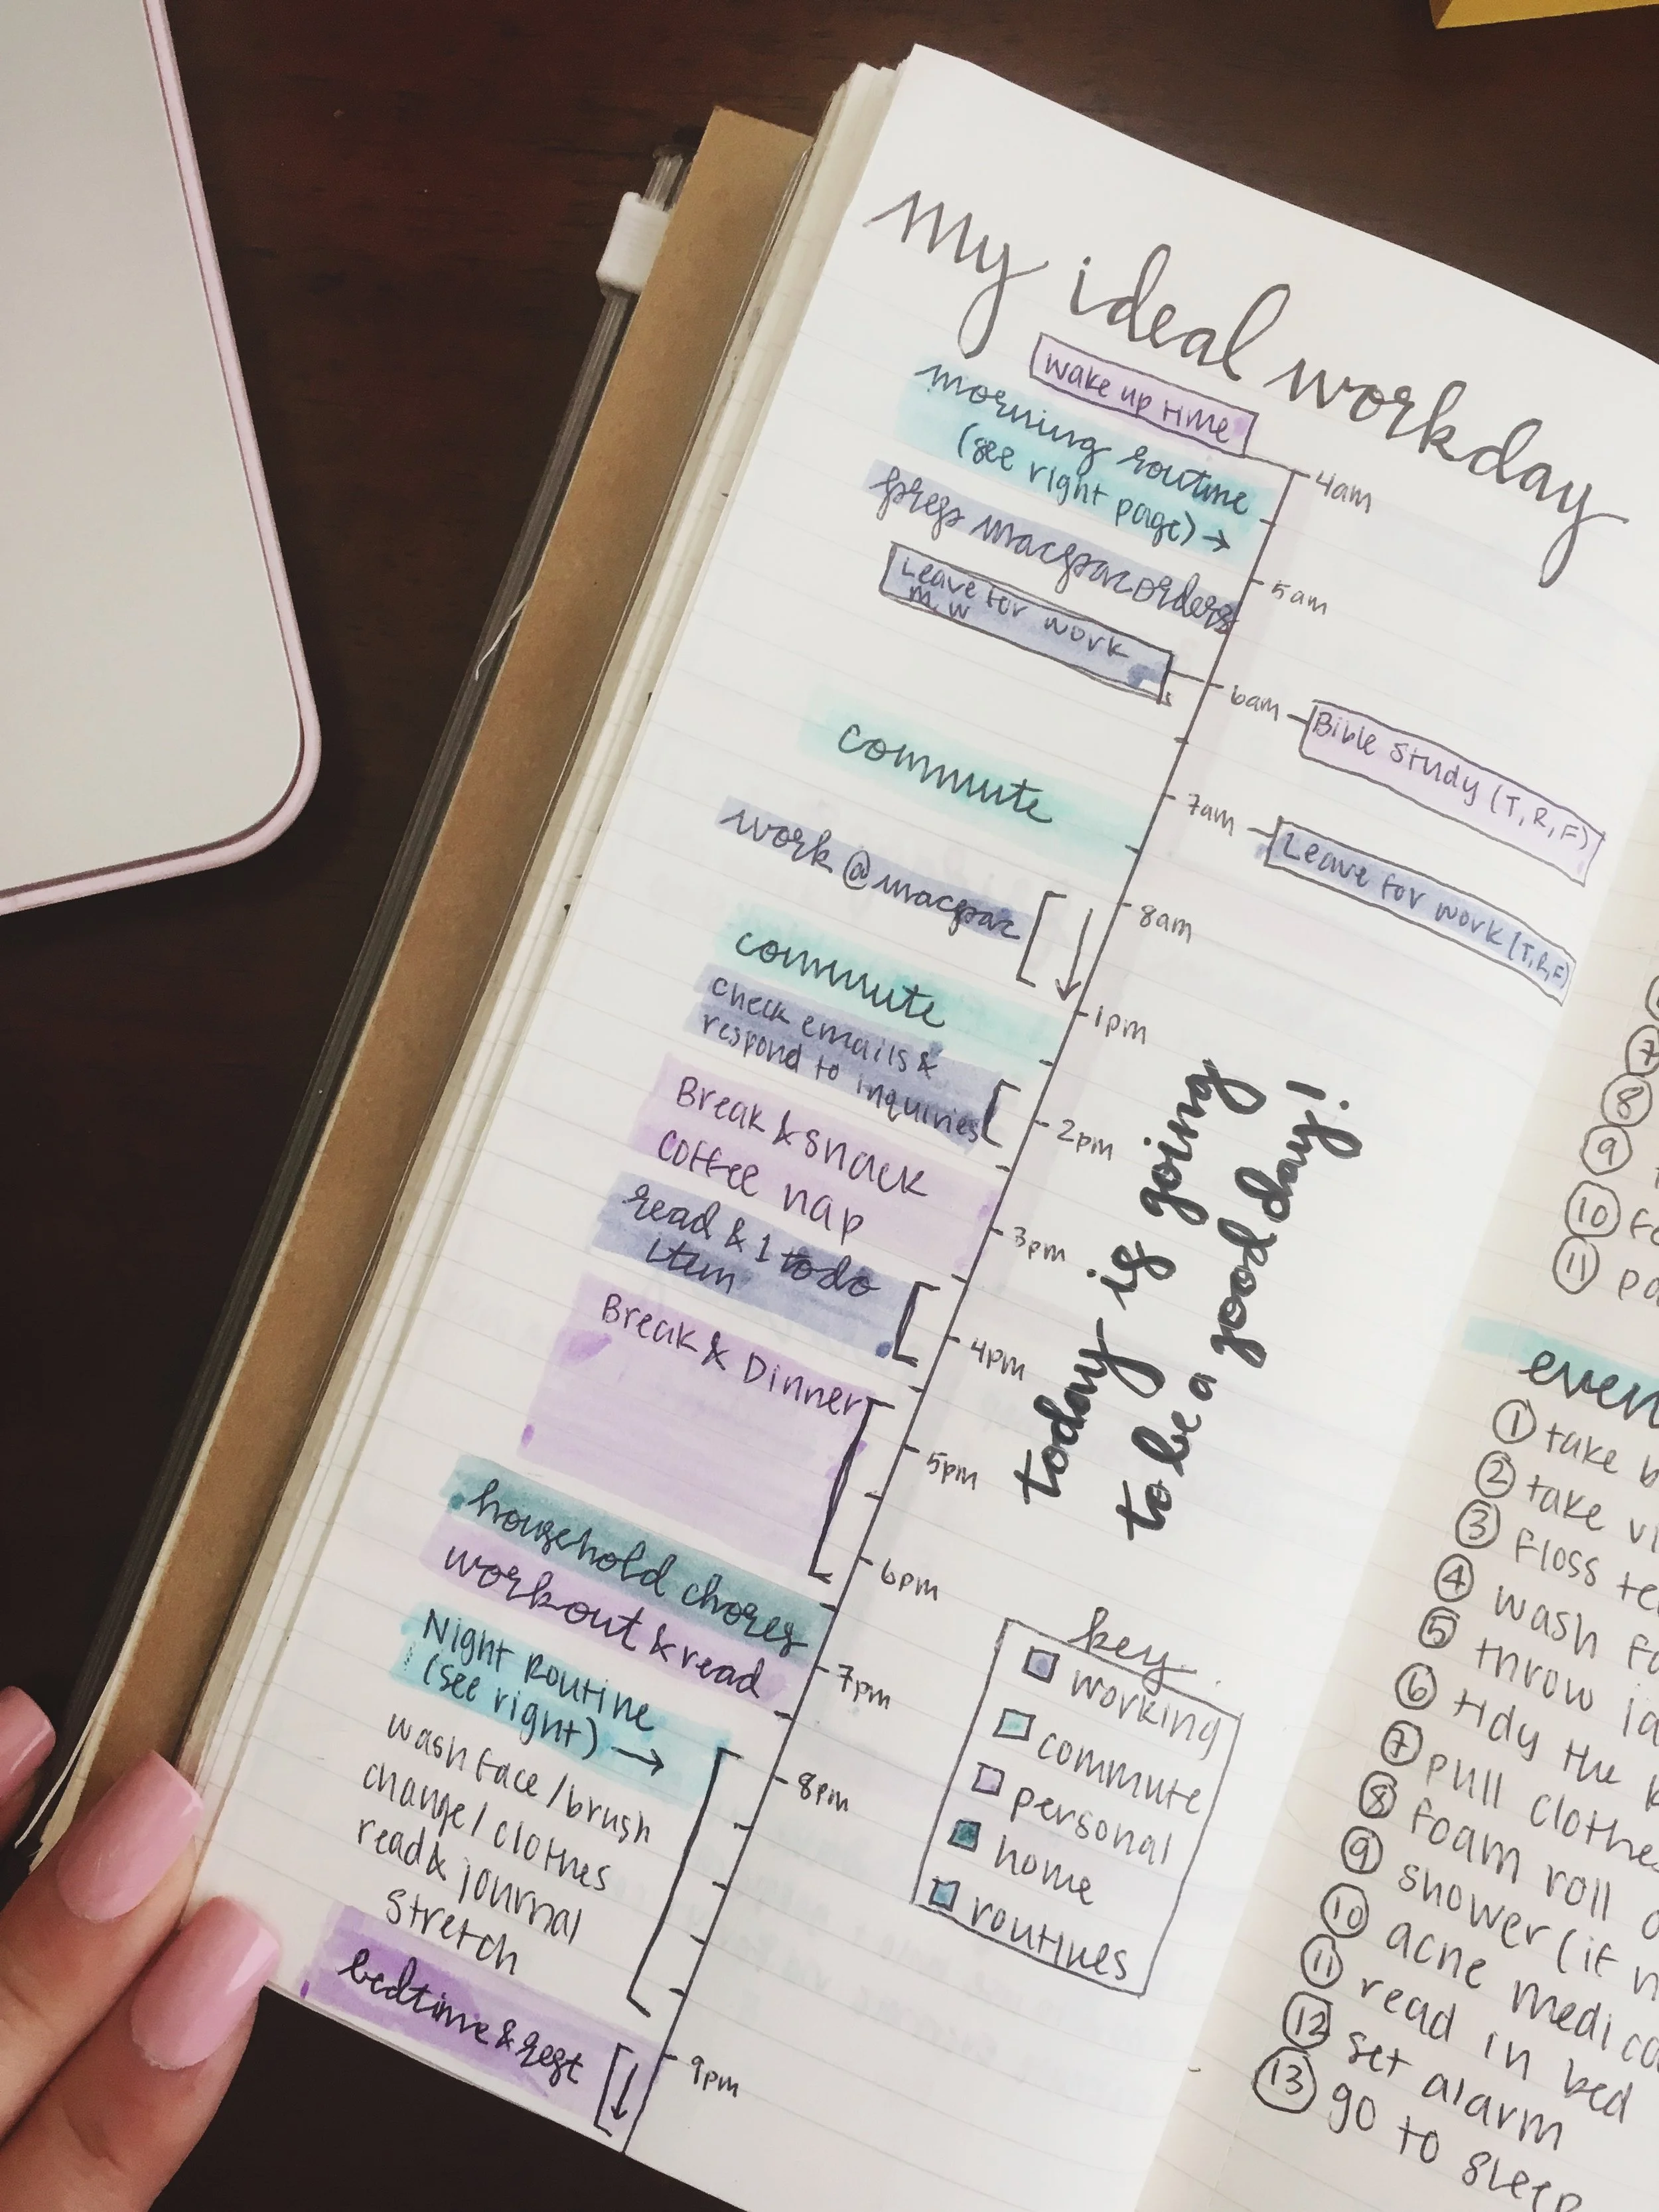 my ideal workday
wake up time
morning routine
(see right page) →
prep macpac orders
Leave for work
M, W
commute
work @ macpac
commute
check emails &
respond to inquiries
Break & snack
coffee nap
read & 1 to do
item
Break & Dinner
household chores
workout & read
Night Routine
(see right) →
wash face / brush
change / clothes
read & journal
stretch
bedtime & rest
4am
5am
6am
Bible Study (T, R, F)
7am
Leave for work (T, R, F)
8am
1pm
2pm
3pm
4pm
5pm
6pm
7pm
8pm
9pm
today is going
to be a good day!
key
working
commute
personal
home
routines
7
8
9
10
11
1 take
2 take
3 floss
4 wash
5 throw
6 tidy the
7 pull clothes
8 foam roll
9 shower (if
10 acne
11 read in bed
12 set alarm
13 go to sleep